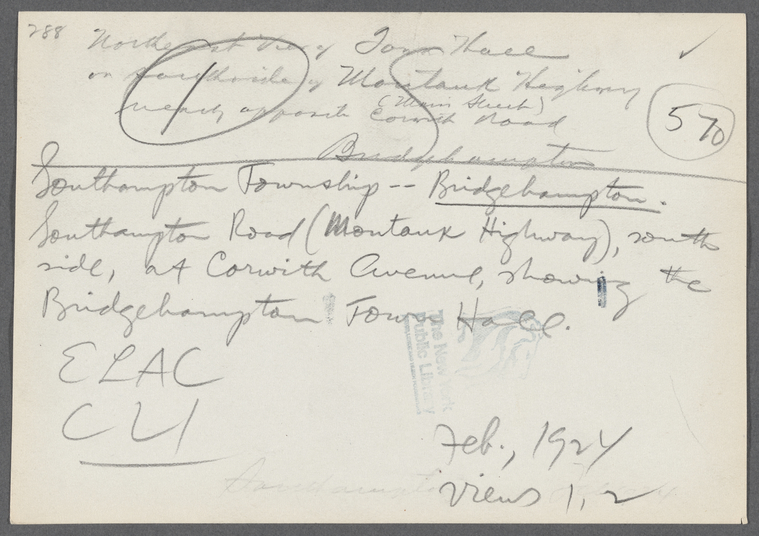 288
Northeast view of Town Hall
on southside of Montauk Highway
(Main Street)
nearly opposite Corwith Road
570
Bridgehampton
Southampton Township -- Bridgehampton.
Southampton Road (Montauk Highway), south
side, at Corwith Avenue, showing the
Bridgehampton Town Hall.
The New York
Public Library
ELAC
CLI
Feb., 1924
Views 1, 2